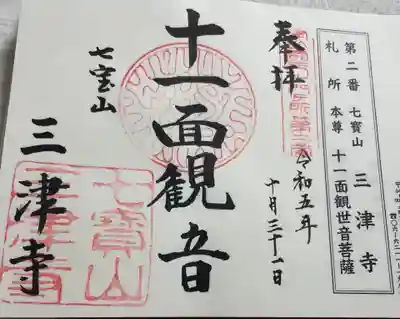 第二番 七寳山 三津寺
札所 本尊 十一面観世音菩薩
奉拝
令和五年
十月三十一日
十一面観音
七宝山
三津寺
七寳山
三津寺